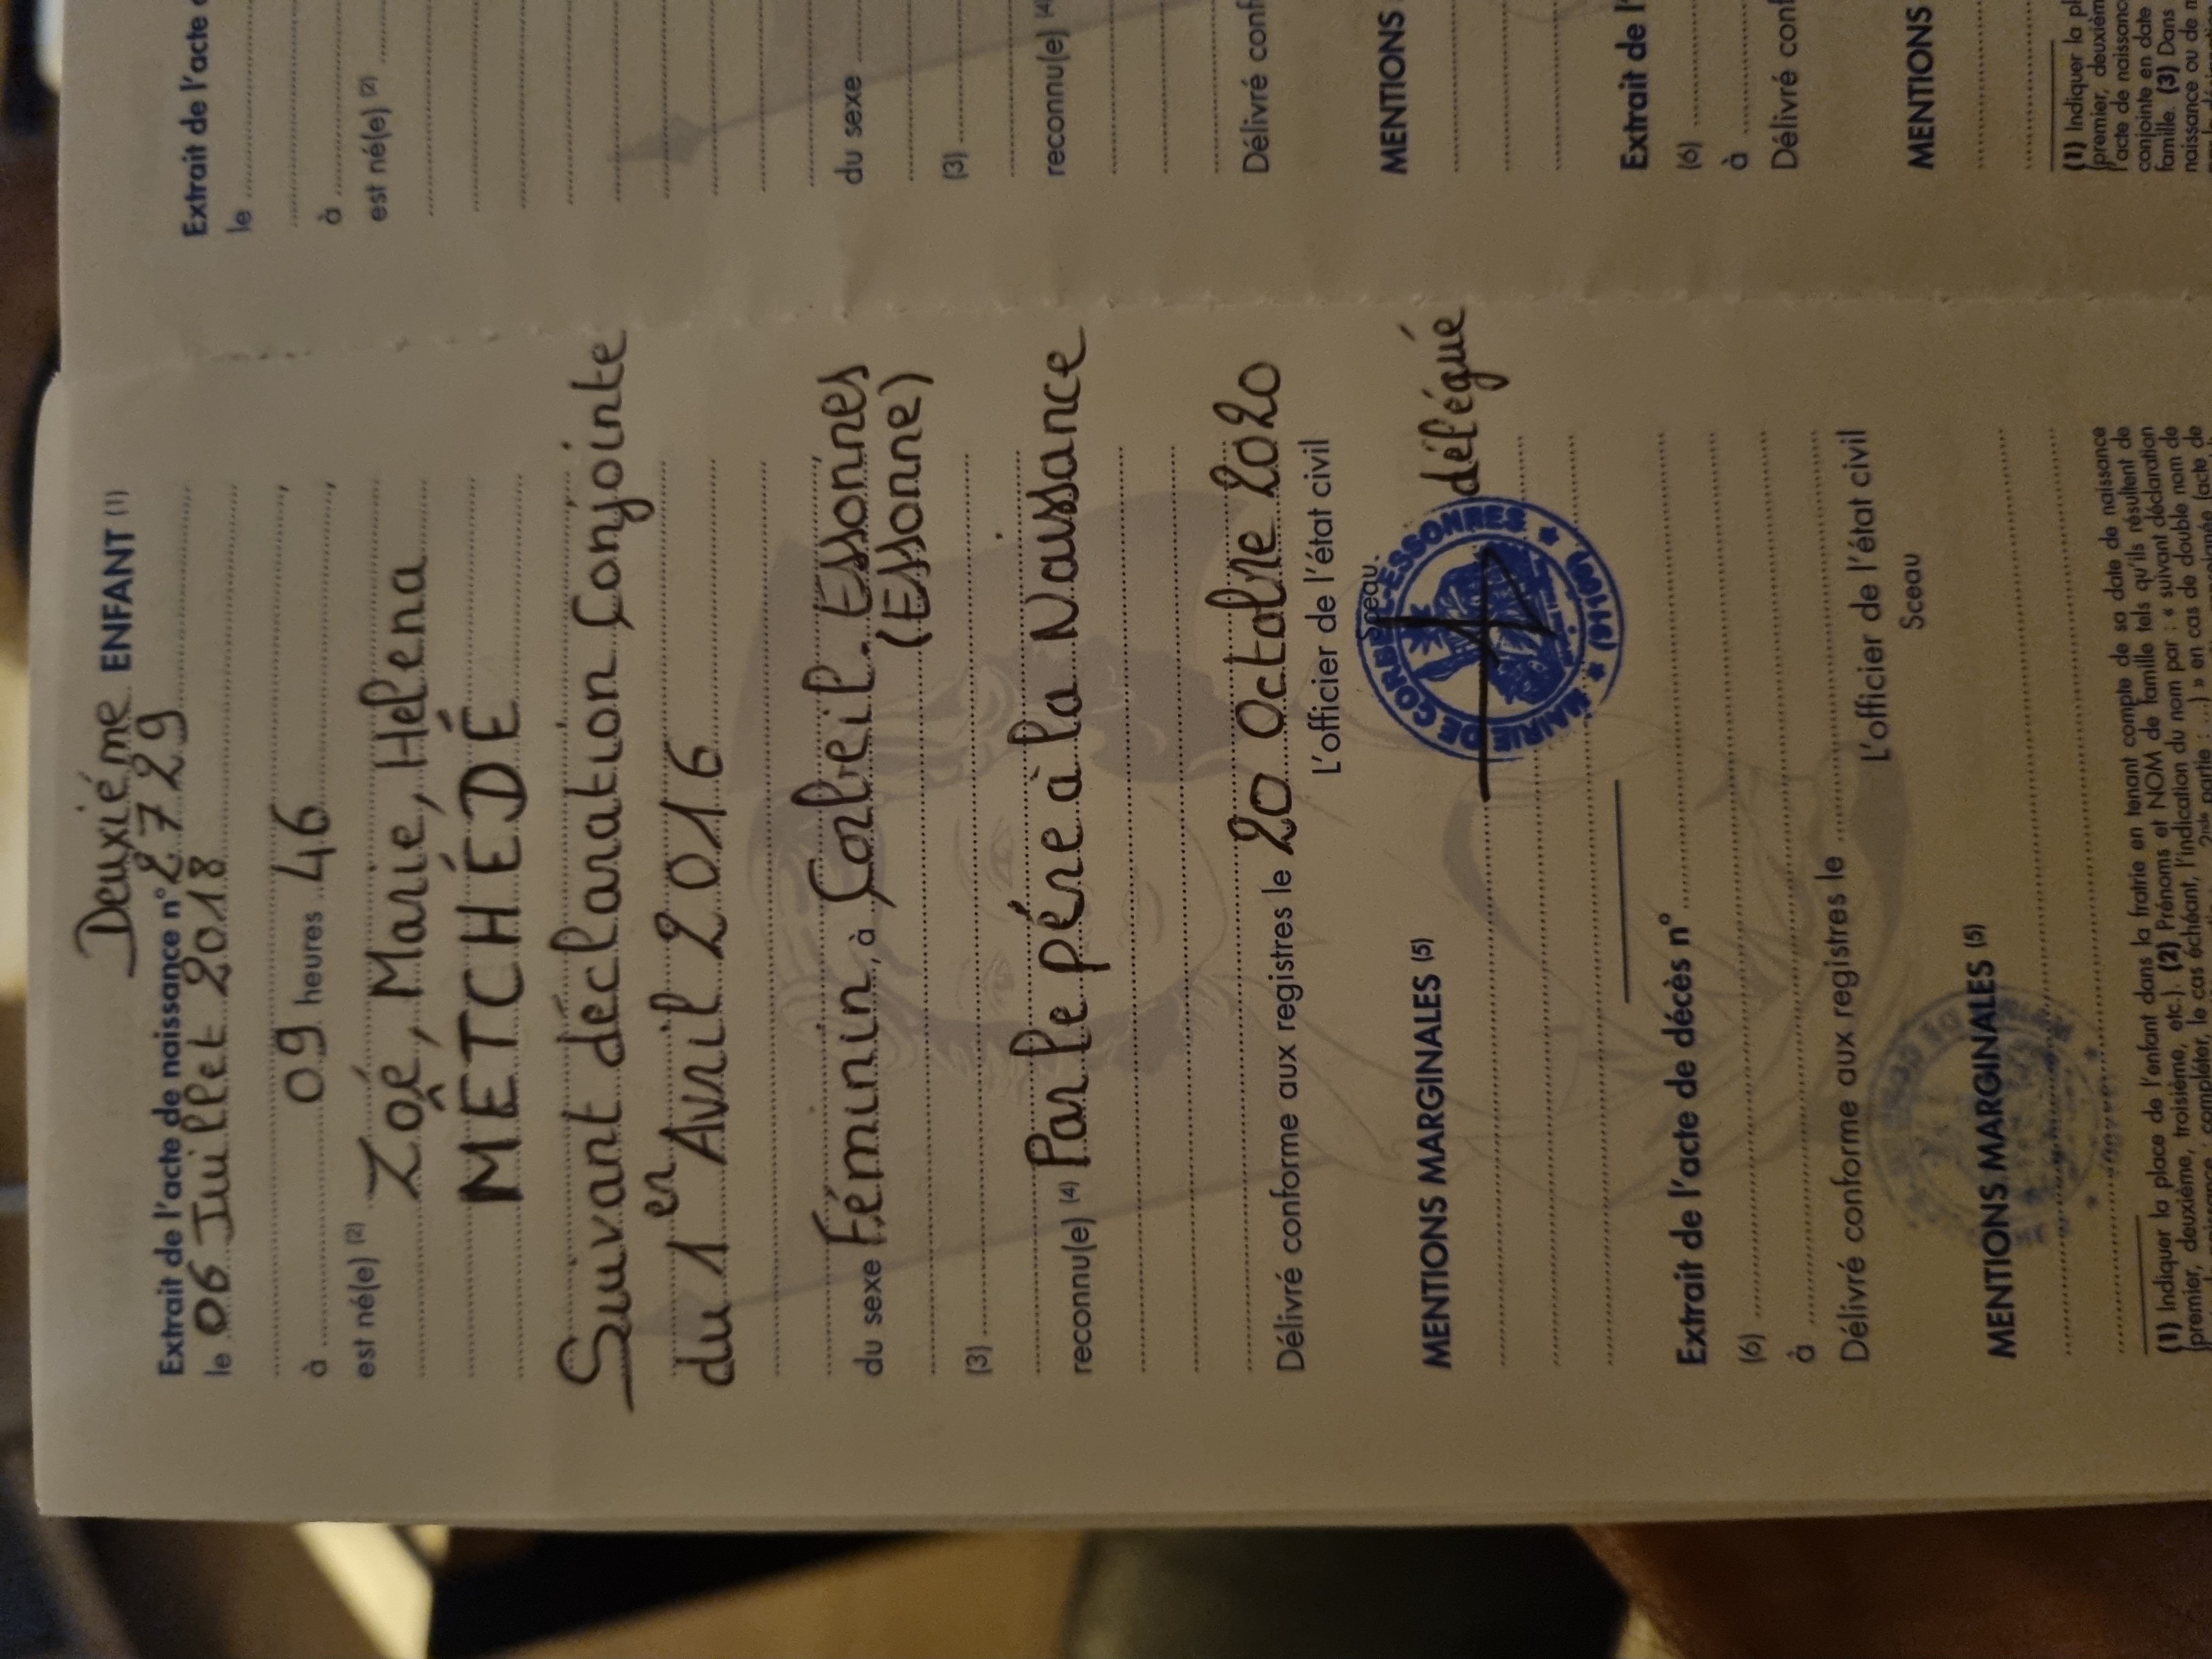 Deuxiéme ENFANT (1)
Extrait de l'acte de naissance n° 2729
le 06 Juillet 2018
à 09 heures 46
est né(e) (2)
Zoé, Marie, Helena
METCHÉDÉ
Suivant déclaration Conjointe
du 1er Avril 2016
du sexe Féminin, à Corbeil-Essonnes
(Essonne)
(3)
reconnu(e) (4) Par le pére à la Naissance
Délivré conforme aux registres le 20 Octobre 2020
L'officier de l'état civil
Sceau
délégué
MAIRIE DE CORBEIL-ESSONNES
(91100)
MENTIONS MARGINALES (5)
Extrait de l'acte de décès n°
(6)
à
Délivré conforme aux registres le
L'officier de l'état civil
Sceau
MENTIONS MARGINALES (5)
(1) Indiquer la place de l'enfant dans la fratrie en tenant compte de sa date de naissance
(premier, deuxième, troisième, etc.). (2) Prénoms et NOM de famille tels qu'ils résultent de
l'acte de naissance, compléter, le cas échéant, l'indication du nom par : « suivant déclaration
Extrait de l'acte
le
à
est né(e) (2)
du sexe
(3)
reconnu(e) (4)
Délivré conf
MENTIONS
Extrait de l'
(6)
à
Délivré conf
MENTIONS
(1) Indiquer la pl
(premier, deuxièm
l'acte de naissanc
conjointe en date
famille. (3) Dans
naissance ou de n